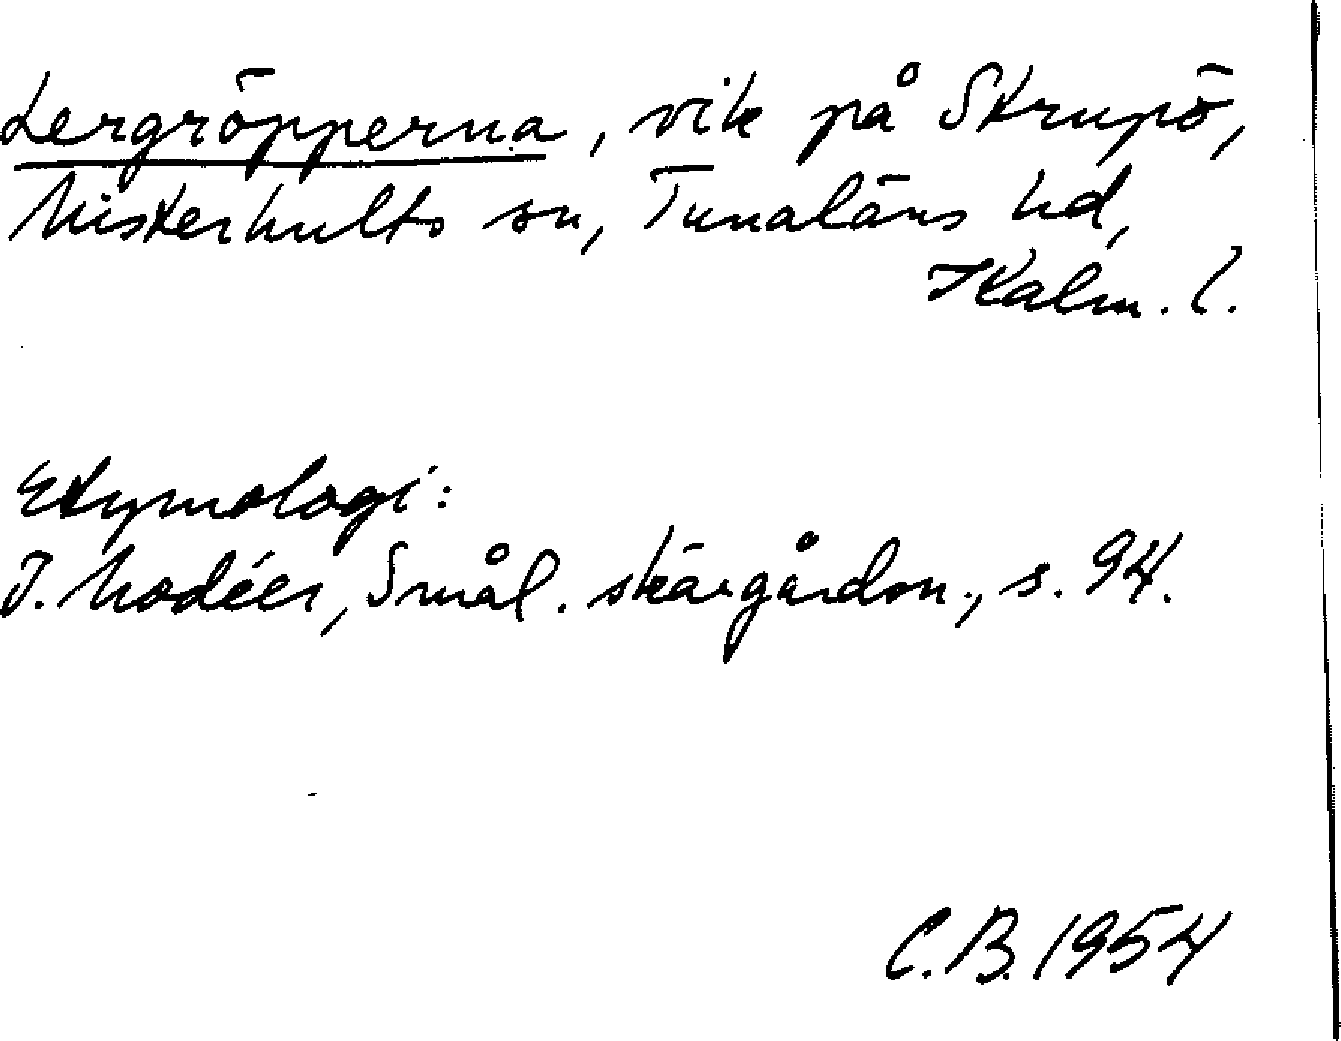 Lergröpperna, vik på Strupö,
Misterhults sn, Tunaläns hd,
Kalm. l.
Etymologi:
I. Modéer, Smål. skärgårdsn., s. 94.
C.B. 1954